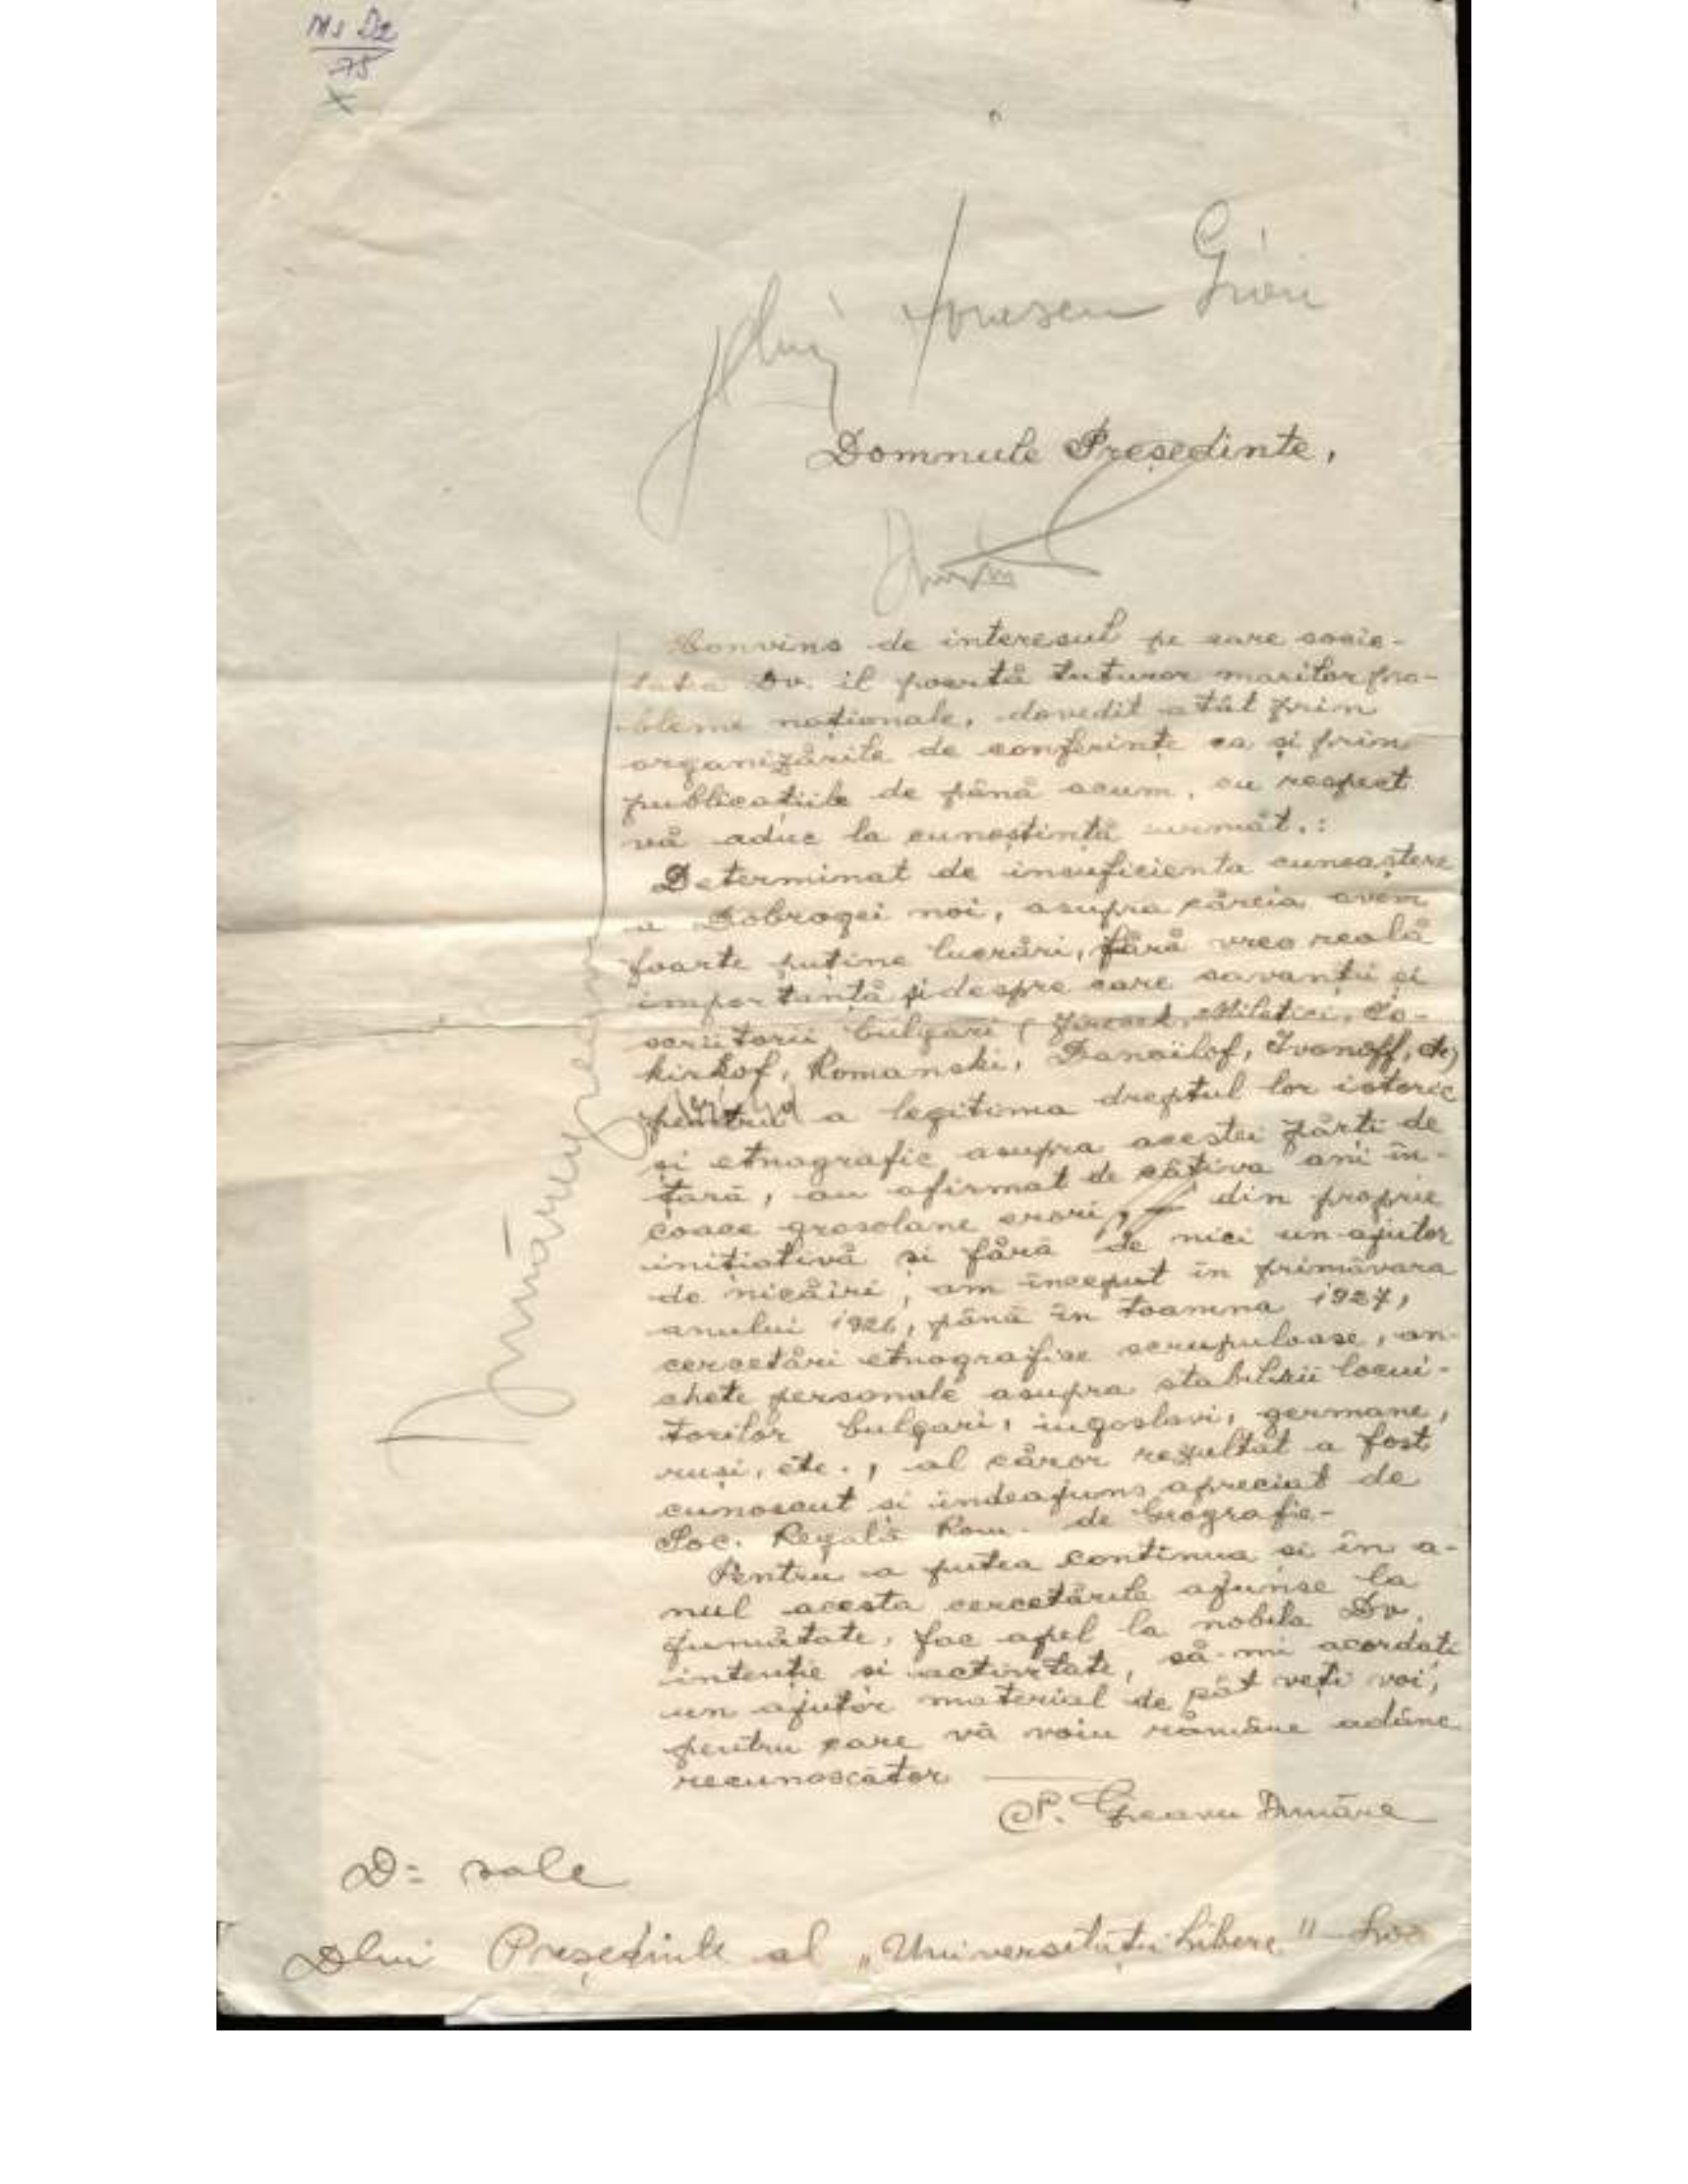 Ms D2
75
X
Dlui Ionescu Gion
Domnule Președinte,
Convins de interesul pe care socie-
tatea Dv. il poartă tuturor marilor pro-
bleme naționale, dovedit atât prin
organizările de conferințe ca și prin
publicațiile de până acum, cu respect
vă aduc la cunoștință următ.:
Determinat de insuficienta cunoaștere
a Dobrogei noi, asupra căreia avem
foarte puține lucrări, fără vreo reală
importanță și despre care savanții și
scriitorii bulgari ( Jirecek, Miletici,
Romanski, Danailof, Ivanoff,
pentru a legitima dreptul lor istoric
și etnografic asupra acestei părți de
țară, au afirmat de câtiva ani în-
coace grosolane erori, din proprie
inițiativă si fără de nici un ajutor
de nicăiri, am început în primăvara
anului 1926, până în toamna 1927,
cercetări etnografice scrupuloase, an-
chete personale asupra stabilirii locui-
torilor bulgari, iugoslavi, germane,
ruși, etc., al căror rezultat a fost
cunoscut si indeajuns apreciat de
Soc. Regală Rom. de Geografie-
Pentru a putea continua si în a-
nul acesta cercetările ajunse la
jumătate, fac apel la nobila Dv.
intenție si activitate, să-mi acordati
un ajutor material de cât veți voi,
pentru care vă voiu rămâne adânc
recunoscător
Greavu Dunăre
D- sale
Dlui Președinte al „Universității Libere"